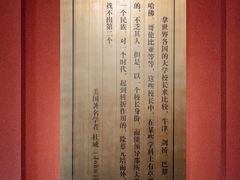 拿世界各国的大学校长来比较，牛津、剑桥、巴黎、
哈佛、哥伦比亚等等，这些校长中，在某些学科上有卓
的，不乏其人；但是，以一个校长身份，而能领导那所大
一个民族、对一个时代，起到转折作用的，除蔡元培而外，
找不出第二个。
美国著名学者 杜威